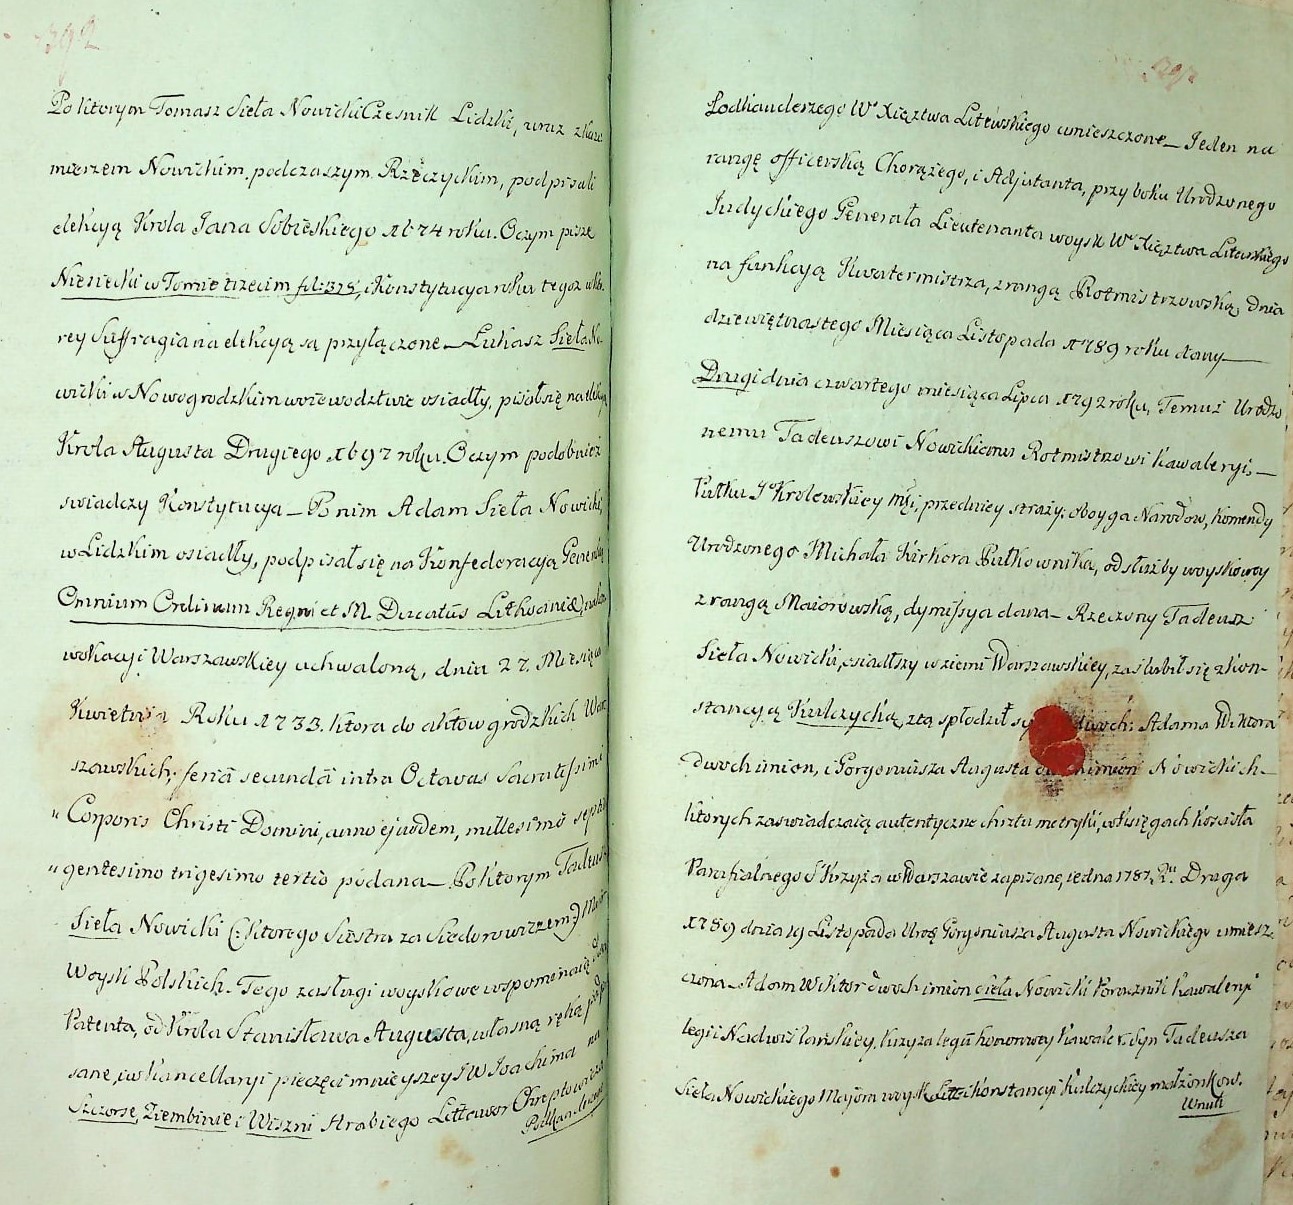 392
Po ktorym Tomasz Sieła Nowicki Czesnik Lidzki, wraz z Kazi
mierzem Nowickim, podczaszym Rzeczyckim, podpisali
elekcyą Krola Jana Sobieskiego 1674 roku. O czym pisze
Niesiecki w Tomie trzecim fol: 375, i Konstytucya roku tegoż w któ-
rey Suffragia na elekcyą są przyłączone — Łukasz Sieła No-
wicki w Nowogrodzkim woiewodztwie osiadły, pisał się na elekcyą
Krola Augusta Drugiego 1697 roku. O czym podobnież
swiadczy Konstytucya — Po nim Adam Sieła Nowicki,
w Lidzkim osiadły, podpisał się na Konfederacyą Generalną
Omnium Ordinum Regni et M. Ducatûs Lithvaniæ, na Kon
wokacyi Warszawskiey uchwaloną, dnia 27. Miesiąca
Kwietnia Roku 1733. ktora do aktow grodzkich War
szawskich, feriâ secundâ intra Octavas Sacratissimi
„ Corporis Christi Domini, anno ejusdem, millesimo septin
„ gentesimo trigesimo tertio podana — Po ktorym Tadeusz
Sieła Nowicki (: ktorego Siestra za Siedorowiczem :) Maior
Woysk Polskich. Tego zasługi woyskowe wspomenaią dwa
Patenta, od Krola Stanisława Augusta, własną ręką podpi
sane, i w Kancellaryi pieczęci mnieyszey J W Joachima na
Szczorse, Ziembinie i Wiszni Hrabiego Littawor Chreptowicza
Podkanclerzego
Podkanclerzego Wº Xięztwa Litewskiego umieszczone — Jeden na
rangę officerską Chorążego, i Adjutanta, przy boku Urodzonego
Judyckiego Generała Lieutenanta woysk Wº Xięztwa Litewskiego
na funkcyą Kwatermistrza, z rangą Rotmistrzowską, dnia
dziewiętnastego Miesiąca Listopada 1789 roku dany —
Drugi dnia czwartego miesiąca Lipca 1792 roku, Temuż Urodzo
nemu Tadeuszowi Nowickiemu Rotmistrzowi Kawaleryi, —
Pułku J Krolewskiey Mci, przedniey straży, oboyga Narodow, komendy
Urodzonego Michała Kirkora Pułkownika, od służby woyskowey
z rangą Maiorowską, dymissya dana — Rzeczony Tadeusz
Sieła Nowicki, osiadłszy w ziemi Warszawskiey, zaślubił się z Kon-
stancyą Kulczycką, z tą spłodził dwoch: Adama Wiktora
dwoch imion, i Gorgoniusza Augusta dwoch imion Nowickich —
ktorych zaswiadczaią autentyczne chrztu metryki, w księgach kościoła
Parafialnego S. Krzyża w Warszawie zapisane, iedna 1787 Ru. Druga
1789 dnia 19 Listopada Urogo Gorgoniusza Augusta Nowickiego umiesz
czona — Adam Wiktor dwoch imion Sieła Nowicki Porucznik Kawaleryi
legii Nadwislańskiey, krzyża legii honorowey Kawaler, Syn Tadeusza
Sieła Nowickiego Majora woysk Litt: i Konstancyi Kulczyckiey małżonkow.
Wnuk